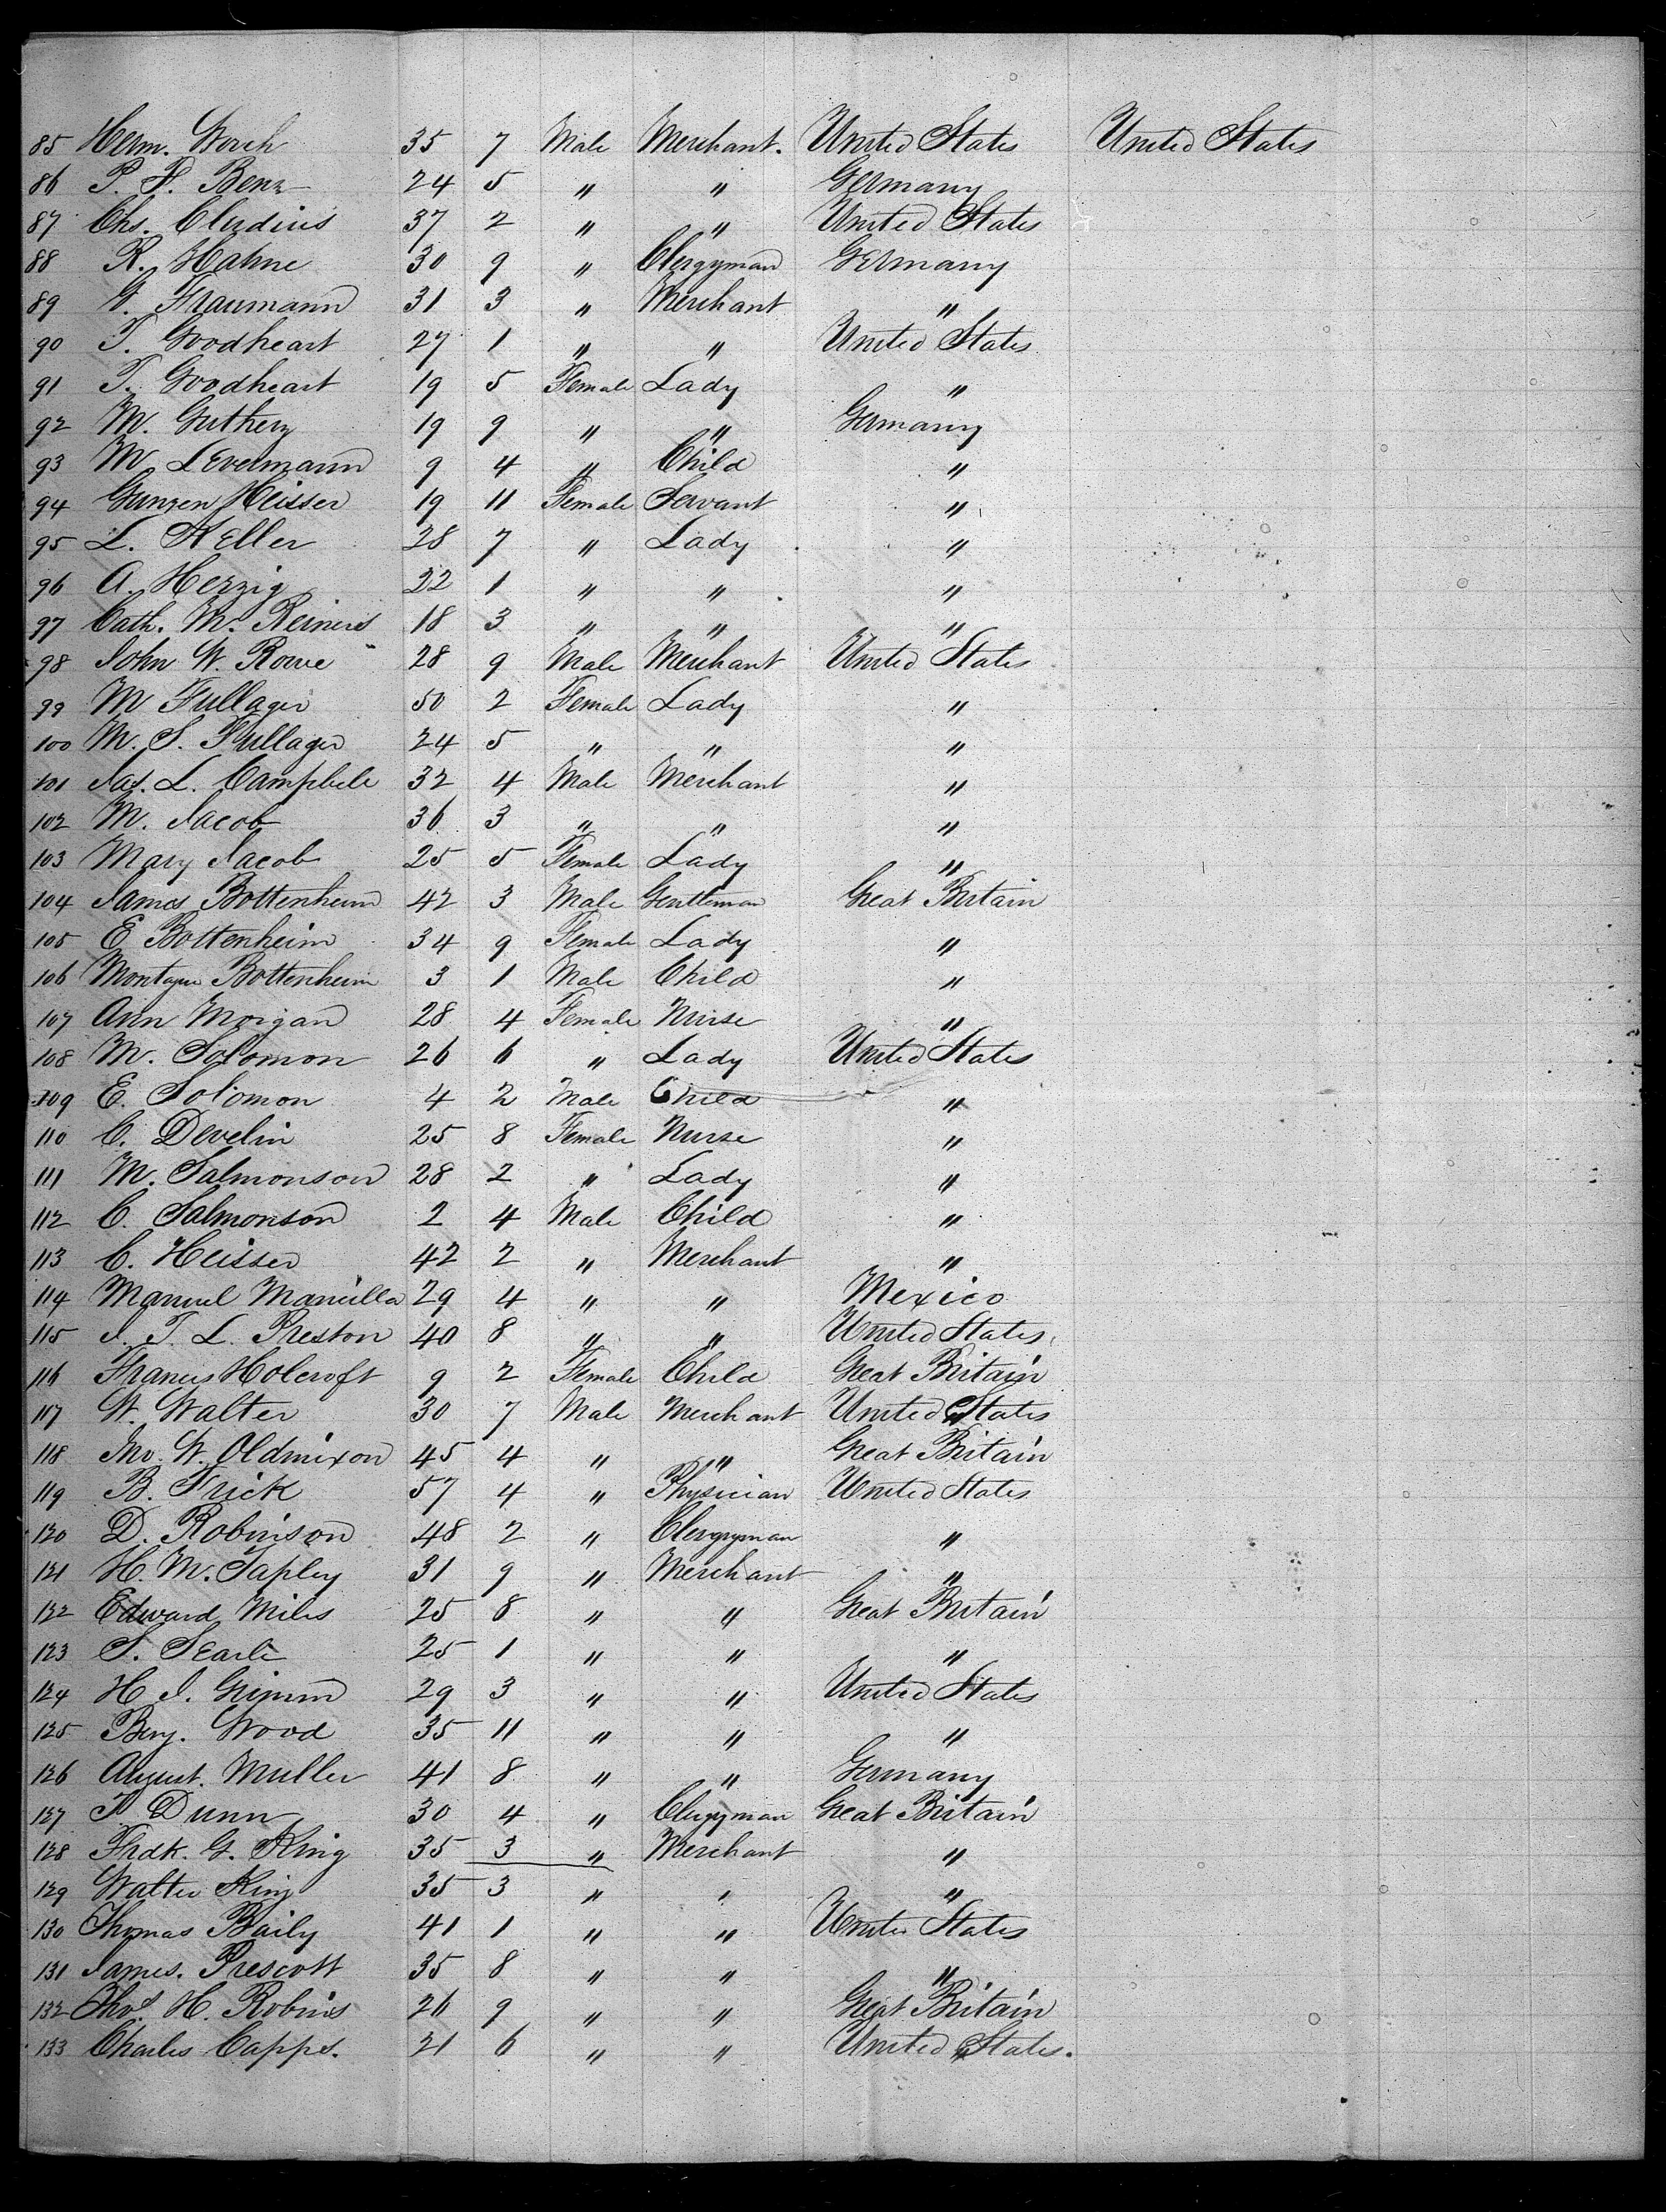 85 Herm. Worch 35 7 Male Merchant. United States United States
86 P. F. Benz 24 5 " " Germany
87 Chs. Cludius 37 2 " " United States
88 R. Hahne 30 9 " Clergyman Germany
89 Fraumann 31 3 " Merchant "
90 T. Goodheart 27 1 " " United States
91 T. Goodheart 19 5 Female Lady "
92 M. Gutherz 19 9 " " Germany
93 M. Levelmann 9 4 " Child "
94 Gunzen Heisser 19 11 Female Servant "
95 L. Keller 28 7 " Lady "
96 A. Herzig 22 1 " " "
97 Cath. M. Reiners 18 3 " " "
98 John W. Rowe 28 9 Male Merchant United States
99 M Fullager 50 2 Female Lady "
100 M. S. Fullager 24 5 " " "
101 Jas. L. Campbele 32 4 Male Merchant "
102 M. Jacob 36 3 " " "
103 Mary Jacob 25 5 Female Lady "
104 James Bottenheim 42 3 Male Gentleman Great Britain
105 E Bottenheim 34 9 Female Lady "
106 Montague Bottenheim 3 1 Male Child "
107 Ann Morgan 28 4 Female Nurse "
108 M. Solomon 26 6 " Lady United States
109 E. Solomon 4 2 Male Child "
110 C. Develin 25 8 Female Nurse "
111 M. Salmonson 28 2 " Lady "
112 C. Salmonson 2 4 Male Child "
113 C. Heisser 42 2 " Merchant "
114 Manuel Mancilla 29 4 " " Mexico
115 J. T. L. Preston 40 8 " " United States
116 Francis Holcroft 9 2 Female Child Great Britain
117 W. Walter 30 7 Male Merchant United States
118 Jno. W. Oldmixon 45 4 " " Great Britain
119 B. Frick 57 4 " Physician United States
120 D. Robinson 48 2 " Clergyman "
121 H. M. Tapley 31 9 " Merchant "
122 Edward Miles 25 8 " " Great Britain
123 S. Searle 25 1 " " "
124 H J. Grimm 29 3 " " United States
125 Benj. Wood 35 11 " " "
126 August. Muller 41 8 " " Germany
127 T Dunn 30 4 " Clergyman Great Britain
128 Fredk. G. King 35 3 " Merchant "
129 Walter King 35 3 " " "
130 Thomas Baily 41 1 " " United States
131 James. Prescott 35 8 " " "
132 Thos. H. Robins 26 9 " " Great Britain
133 Charles Capps. 21 6 " " United States.